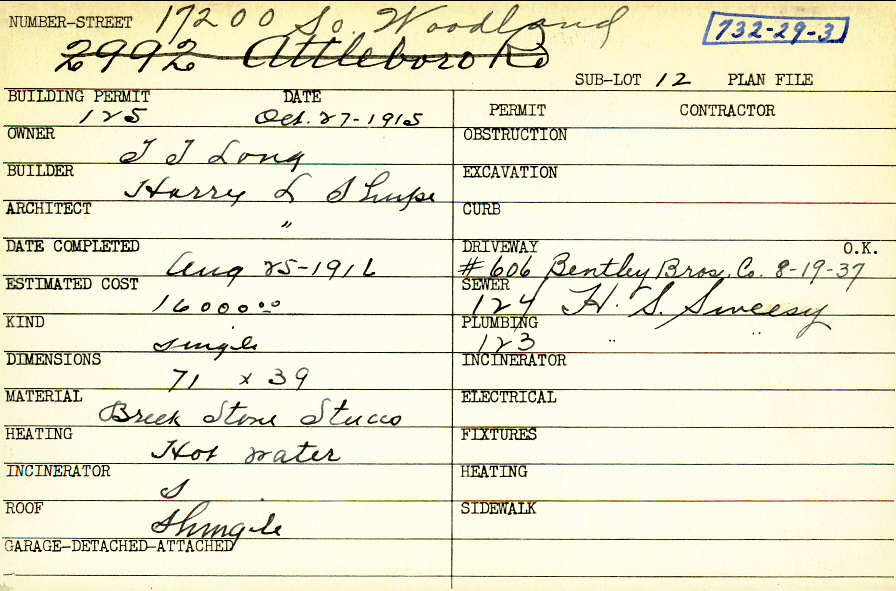 NUMBER-STREET 17200 So. Woodland
732-29-3
2992 Attleboro Rd
SUB-LOT 12 PLAN FILE
BUILDING PERMIT DATE
125 Oct. 27-1915
PERMIT CONTRACTOR
OWNER
T T Long
OBSTRUCTION
BUILDER
Harry L Shupe
EXCAVATION
ARCHITECT
"
CURB
DATE COMPLETED
Aug 25-1916
DRIVEWAY O.K.
#606 Bentley Bros. Co. 8-19-37
ESTIMATED COST
16000.00
SEWER
124 H. S. Sweesy
KIND
single
PLUMBING
123 " "
DIMENSIONS
71 x 39
INCINERATOR
MATERIAL
Brick Stone Stucco
ELECTRICAL
HEATING
Hot water
FIXTURES
INCINERATOR
S
HEATING
ROOF
Shingle
SIDEWALK
GARAGE-DETACHED-ATTACHED